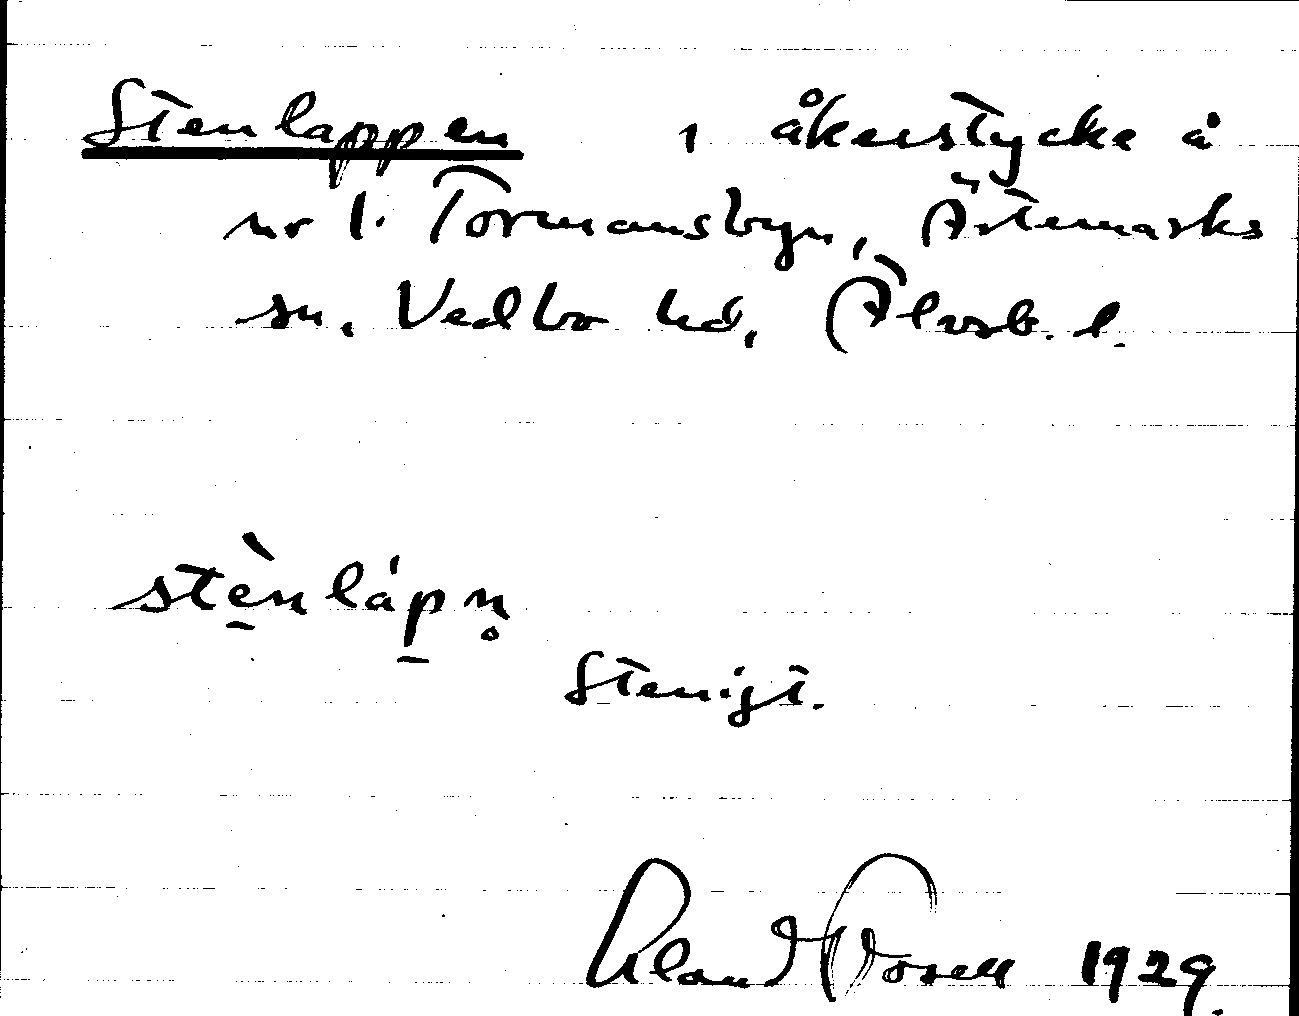 Stenlappen, åkerstycke å
nr 1. Tormansbyn, Ärtemarks
sn, Vedbo hd, Älvsb. l.
stè̱nláp̱n̥
Stenigt.
Rosell 1929.